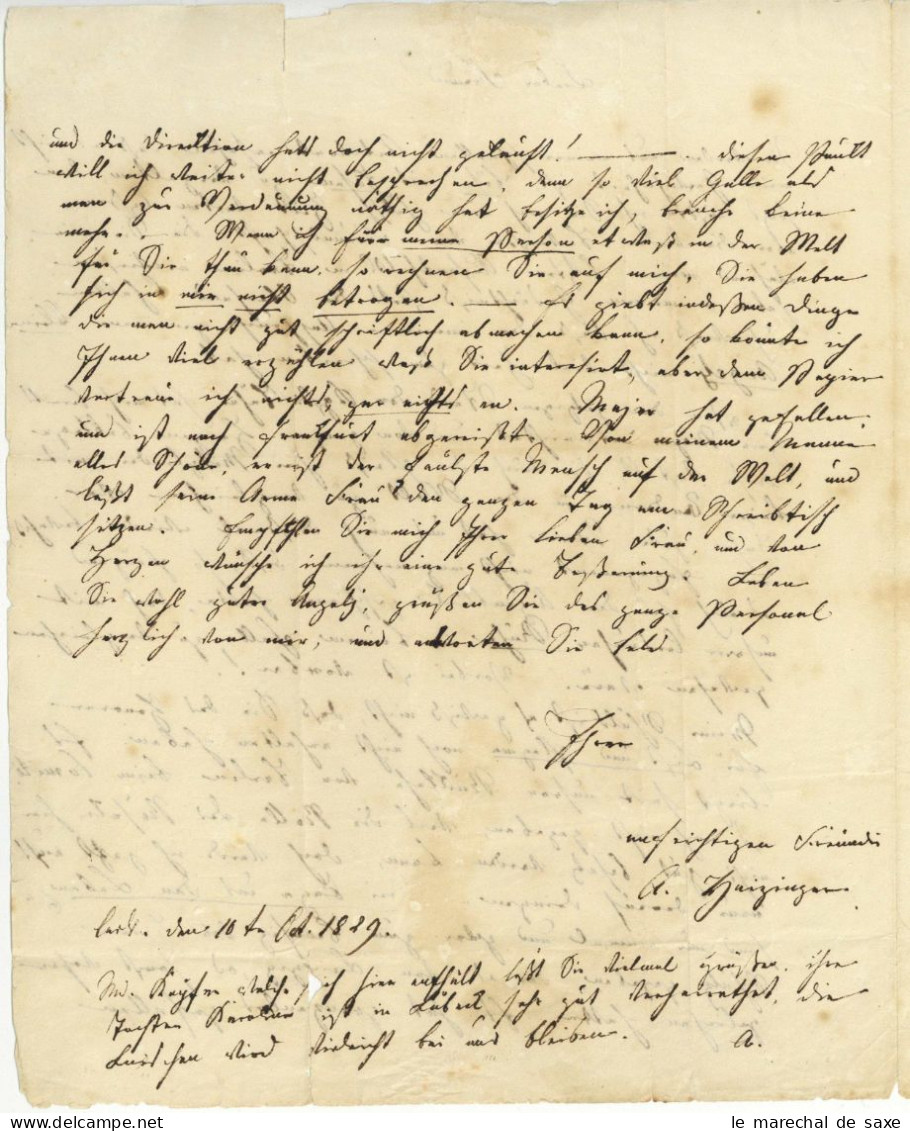 und die Direcktion hats doch nicht gekauft! —— . diesen Punkt
will ich weiter nicht besprechen, denn so viel Galle als
man zur Verdauung nöthig hat besitze ich, brauche keine
mehr. - Wenn ich für meine Person etwaß in der Welt
für Sie thun kann, so rechnen Sie auf mich, Sie haben
sich in mir nicht betrogen. — Es giebt indeßen Dinge
die man nicht gut schriftlich abmachen kann, so könnte ich
Ihnen viel erzählen waß Sie interesirt, aber dem Papier
vertraue ich nichts, gar nichts an. Majer hat gefallen,
und ist nach Frankfurt abgereißt. Von meinem Manne
alles Schöne, er ist der faulste Mensch auf der Welt, und
läßt seine Arme Frau den ganzen Tag am Schreibtisch
sitzen. Empfehlen Sie mich Ihrer lieben Frau, und von
Herzen wünsche ich ihr eine gute Beßerung. Leben
Sie wohl guter Angely, grüßen Sie das ganze Personal
herzlich von mir, und antworten Sie bald
Ihrer
aufrichtigen Freundin
A. Haizinger
Carls. den 10te Oct. 1829.
Md. welche sich hier aufhält läßt Sie vielmal grüßen, ihre
Tochter Karoline ist in Lübeck sehr gut verheirathet, die
Luischen wird vieleicht bei uns bleiben. A.
le marechal de saxe